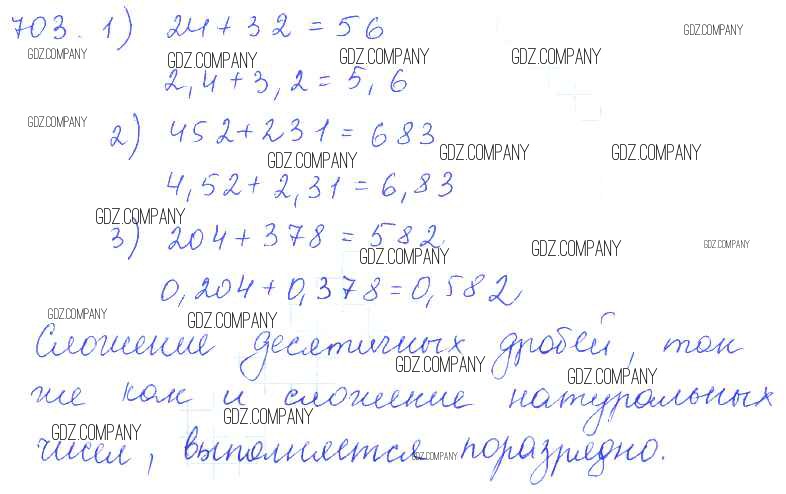 703. 1) 24 + 32 = 56
GDZ.COMPANY
GDZ.COMPANY GDZ.COMPANY GDZ.COMPANY GDZ.COMPANY
2,4 + 3,2 = 5,6
GDZ.COMPANY
2) 452 + 231 = 683
GDZ.COMPANY GDZ.COMPANY GDZ.COMPANY
4,52 + 2,31 = 6,83
GDZ.COMPANY
3) 204 + 378 = 582
GDZ.COMPANY GDZ.COMPANY GDZ.COMPANY
0,204 + 0,378 = 0,582
GDZ.COMPANY GDZ.COMPANY
Сложение десятичных дробей, так
GDZ.COMPANY GDZ.COMPANY
же как и сложение натуральных
GDZ.COMPANY GDZ.COMPANY
чисел, выполняется поразрядно.
GDZ.COMPANY